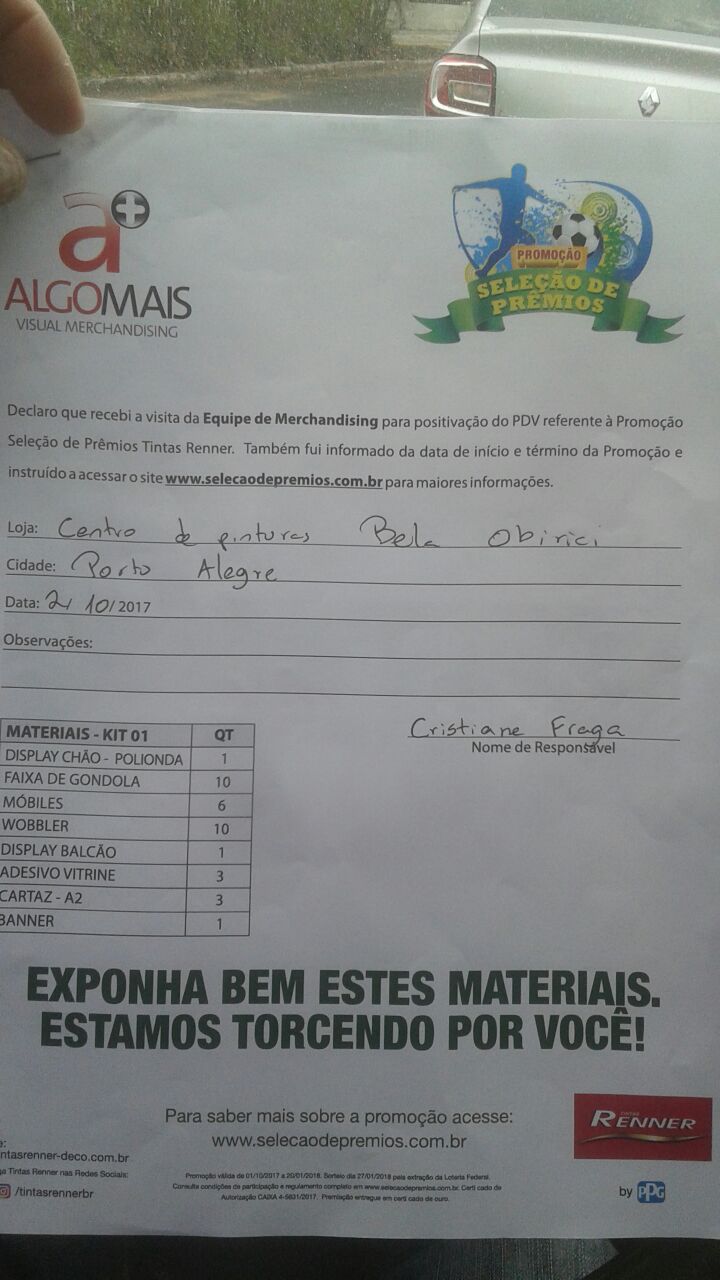 a+
ALGOMAIS
VISUAL MERCHANDISING
PROMOÇÃO
SELEÇÃO DE
PRÊMIOS
Declaro que recebi a visita da Equipe de Merchandising para positivação do PDV referente à Promoção
Seleção de Prêmios Tintas Renner. Também fui informado da data de início e término da Promoção e
instruído a acessar o site www.selecaodepremios.com.br para maiores informações.
Loja: Centro de pinturas Bela Obirici
Cidade: Porto Alegre
Data: 2/10/2017
Observações:
Cristiane Fraga
Nome de Responsável
MATERIAIS - KIT 01 QT
DISPLAY CHÃO - POLIONDA 1
FAIXA DE GONDOLA 10
MÓBILES 6
WOBBLER 10
DISPLAY BALCÃO 1
ADESIVO VITRINE 3
CARTAZ - A2 3
BANNER 1
EXPONHA BEM ESTES MATERIAIS.
ESTAMOS TORCENDO POR VOCÊ!
Para saber mais sobre a promoção acesse:
www.selecaodepremios.com.br
TINTAS
RENNER
by PPG
e:
ntasrenner-deco.com.br
a Tintas Renner nas Redes Sociais:
/tintasrennerbr
Promoção válida de 01/10/2017 a 20/01/2018. Sorteio dia 27/01/2018 pela extração da Loteria Federal.
Consulte condições de participação e regulamento completo em www.selecaodepremios.com.br. Certificado de
Autorização CAIXA 4-5631/2017. Premiação entregue em certificado de ouro.